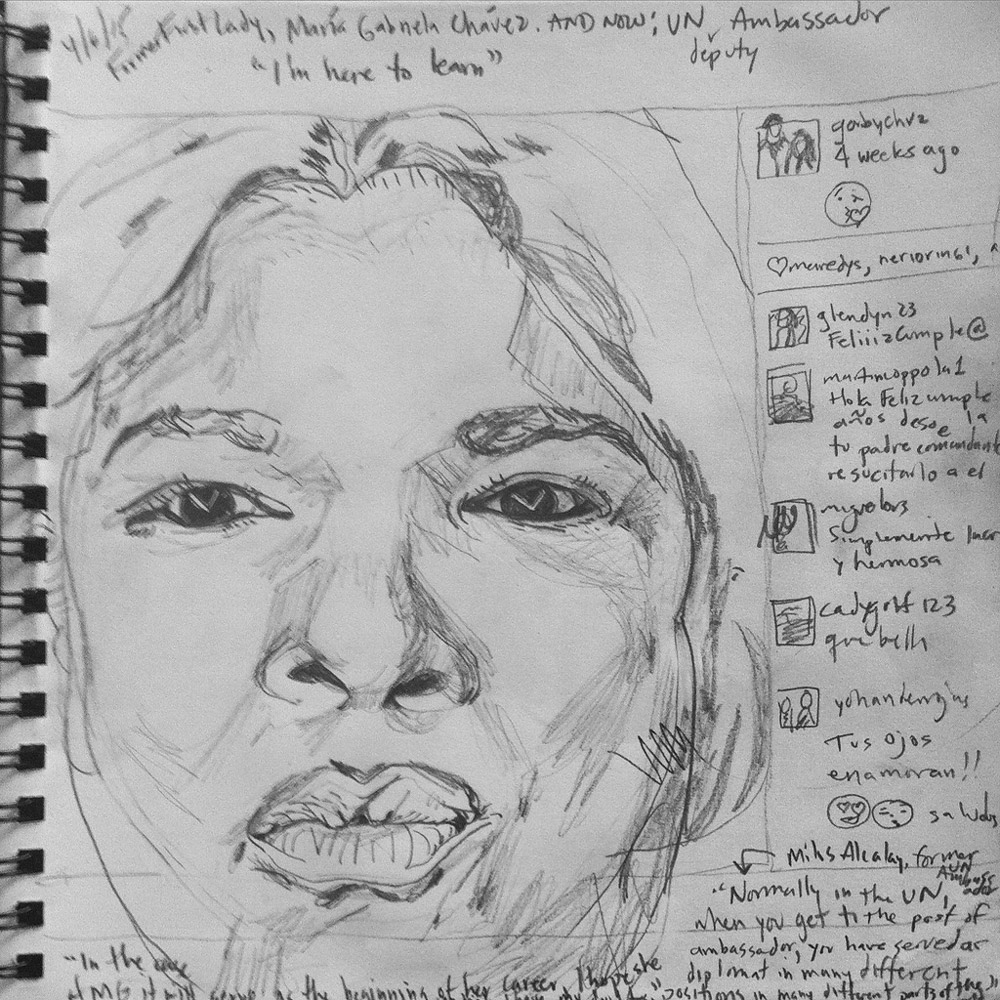 4/6/15 Former First Lady, María Gabriela Chávez. AND NOW: UN deputy Ambassador
"I'm here to learn"
gabychvz
4 weeks ago
maredys,
glendyn23
Feliiiz Cumple@
Hola Feliz cumple
años desde la
tu padre comandante
resucitarlo a el
Simplemente
y hermosa
que bella
Tus ojos
enamoran!!
saludos
Milos Alcalay, former UN Ambassador
"Normally in the UN,
when you get to the post of
ambassador, you have served as
diplomat in many different
positions in many different parts of the
"In the case
of MG it will serve as the beginning of her career, I hope she